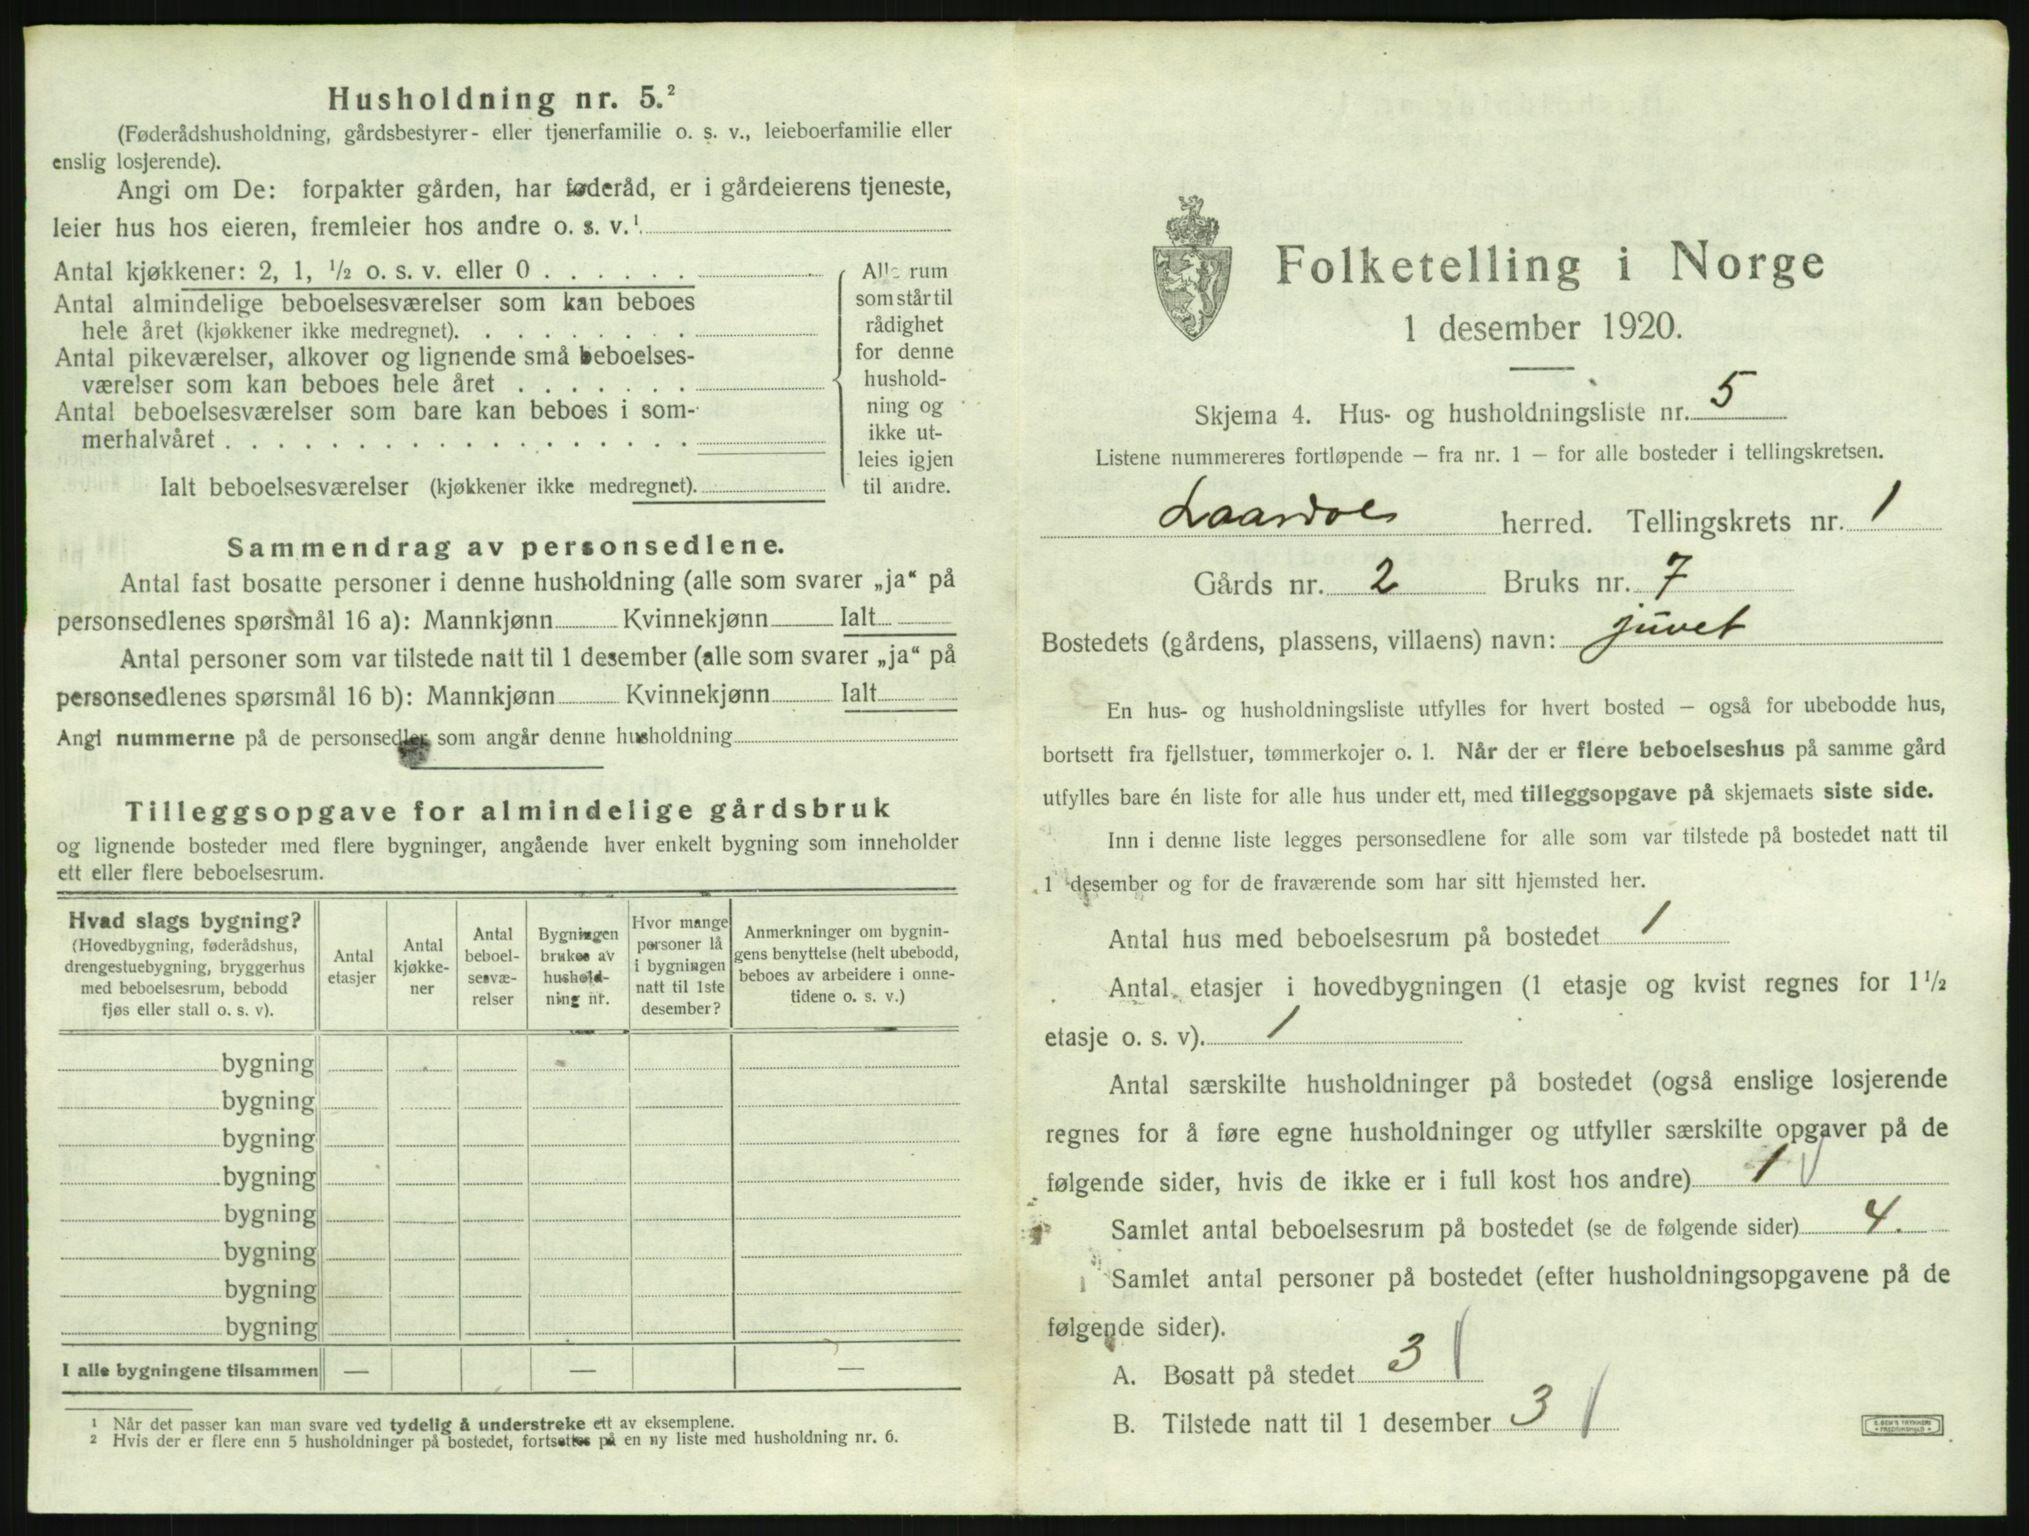 Husholdning nr. 5.²
(Føderådshusholdning, gårdsbestyrer- eller tjenerfamilie o. s. v., leieboerfamilie eller
enslig losjerende).
Angi om De: forpakter gården, har føderåd, er i gårdeierens tjeneste,
leier hus hos eieren, fremleier hos andre o. s. v.¹
Antal kjøkkener: 2, 1, ½ o. s. v. eller 0 . . . . . .
Antal almindelige beboelsesværelser som kan beboes
hele året (kjøkkener ikke medregnet). . . . . . . . .
Antal pikeværelser, alkover og lignende små beboelses-
værelser som kan beboes hele året . . . . . . .
Antal beboelsesværelser som bare kan beboes i som-
merhalvåret . . . . . . . . . . . . . . . . . .
Ialt beboelsesværelser (kjøkkener ikke medregnet).
Alle rum
som står til
rådighet
for denne
hushold-
ning og
ikke ut-
leies igjen
til andre.
Sammendrag av personsedlene.
Antal fast bosatte personer i denne husholdning (alle som svarer „ja“ på
personsedlenes spørsmål 16 a): Mannkjønn Kvinnekjønn Ialt
Antal personer som var tilstede natt til 1 desember (alle som svarer „ja“ på
personsedlenes spørsmål 16 b): Mannkjønn Kvinnekjønn Ialt
Angi nummerne på de personsedler som angår denne husholdning
Tilleggsopgave for almindelige gårdsbruk
og lignende bosteder med flere bygninger, angående hver enkelt bygning som inneholder
ett eller flere beboelsesrum.
Hvad slags bygning?
(Hovedbygning, føderådshus,
drengestuebygning, bryggerhus
med beboelsesrum, bebodd
fjøs eller stall o. s. v).
Antal
etasjer
Antal
kjøkke-
ner
Antal
beboel-
sesvæ-
relser
Bygningen
brukes av
hushold-
ning nr.
Hvor mange
personer lå
i bygningen
natt til 1ste
desember?
Anmerkninger om bygnin-
gens benyttelse (helt ubebodd,
beboes av arbeidere i onne-
tidene o. s. v.)
bygning
bygning
bygning
bygning
bygning
bygning
bygning
bygning
I alle bygningene tilsammen — — —
¹ Når det passer kan man svare ved tydelig å understreke ett av eksemplene.
² Hvis der er flere enn 5 husholdninger på bostedet, fortsettes på en ny liste med husholdning nr. 6.
Folketelling i Norge
1 desember 1920.
Skjema 4. Hus- og husholdningsliste nr. 5
Listene nummereres fortløpende – fra nr. 1 – for alle bosteder i tellingskretsen.
Laardal herred. Tellingskrets nr. 1
Gårds nr. 2 Bruks nr. 7
Bostedets (gårdens, plassens, villaens) navn: juvet
En hus- og husholdningsliste utfylles for hvert bosted – også for ubebodde hus,
bortsett fra fjellstuer, tømmerkojer o. l. Når der er flere beboelseshus på samme gård
utfylles bare én liste for alle hus under ett, med tilleggsopgave på skjemaets siste side.
Inn i denne liste legges personsedlene for alle som var tilstede på bostedet natt til
1 desember og for de fraværende som har sitt hjemsted her.
Antal hus med beboelsesrum på bostedet 1
Antal etasjer i hovedbygningen (1 etasje og kvist regnes for 1½
etasje o. s. v). 1
Antal særskilte husholdninger på bostedet (også enslige losjerende
regnes for å føre egne husholdninger og utfyller særskilte opgaver på de
følgende sider, hvis de ikke er i full kost hos andre) 1
Samlet antal beboelsesrum på bostedet (se de følgende sider) 4.
Samlet antal personer på bostedet (efter husholdningsopgavene på de
følgende sider).
A. Bosatt på stedet 3
B. Tilstede natt til 1 desember 3